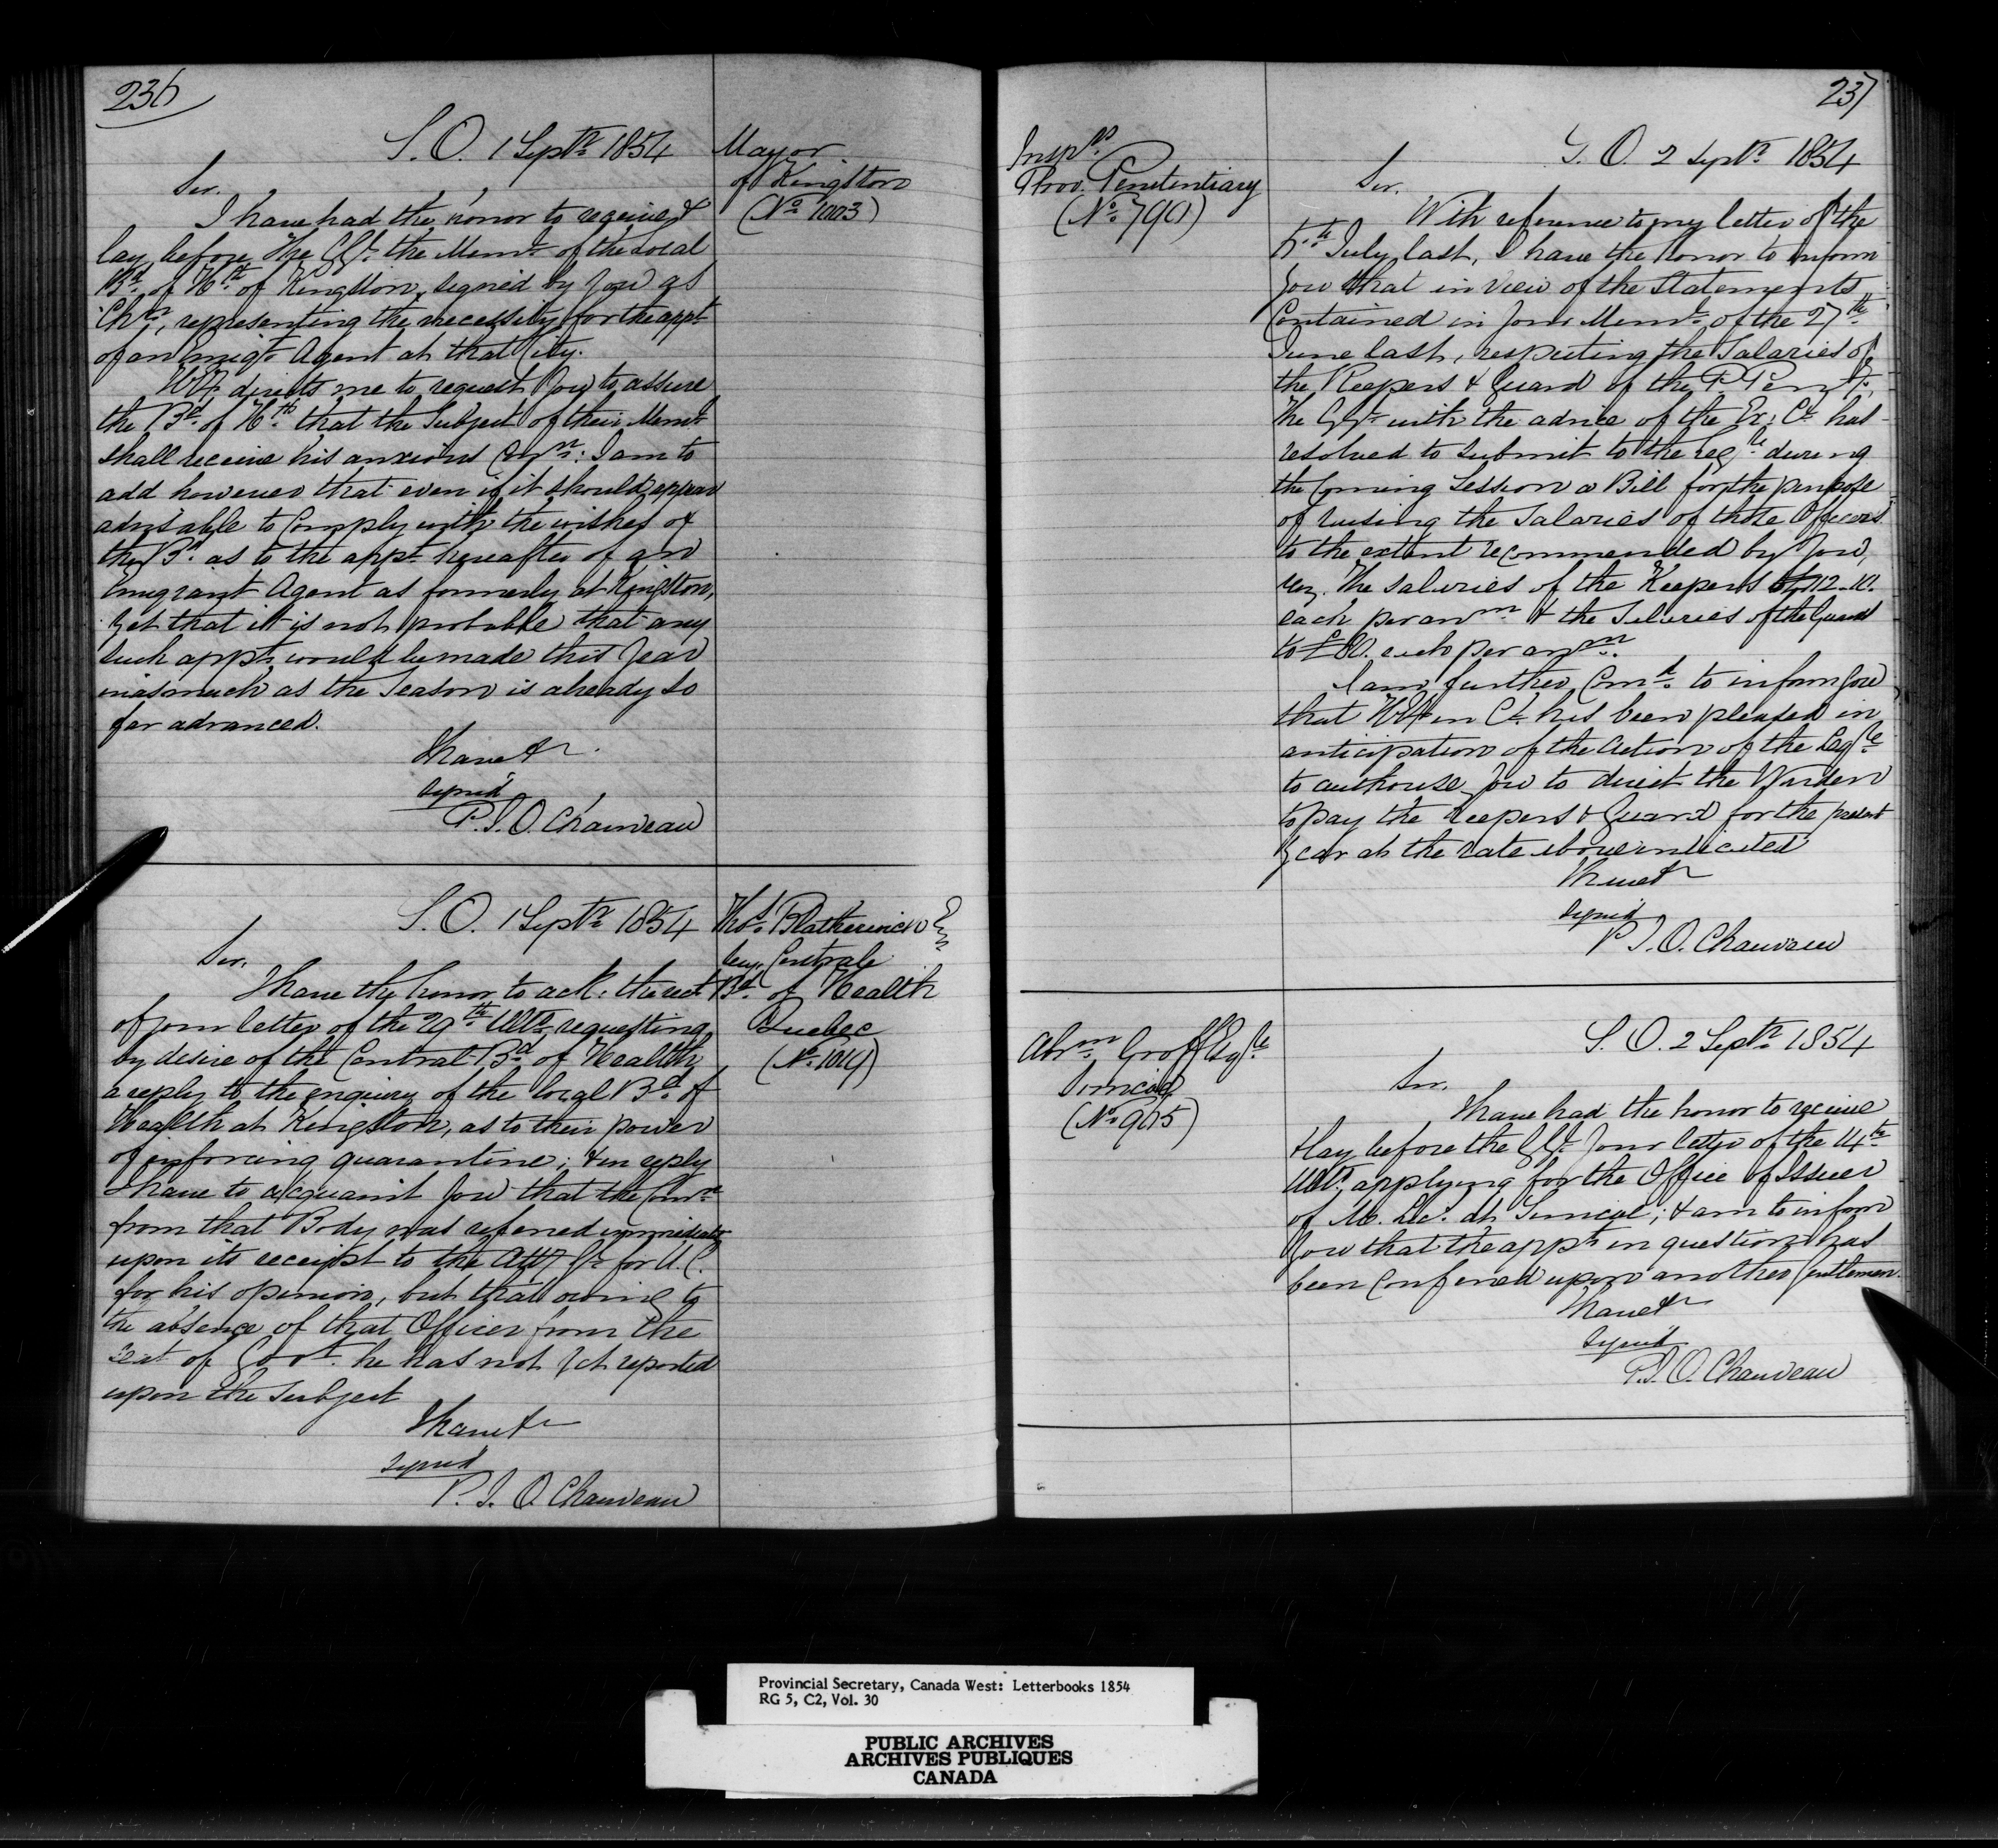 236
S. O. 1 Septr. 1854
Mayor
of Kingston
(No. 1003)
Sir,
I have had the honor to receive &
lay before the GGl. the Meml. of the Local
Bd. of Hth. of Kingston, signed by you as
Chn., representing the necessity for the appt.
of an Emigt. Agent at that City.
HE directs me to request you to assure
the Bd. of Hth. that the Subject of their Meml.
shall receive his anxious Conn.: I am to
add however that even if it should appear
advisable to Comply with the wishes of
the Bd. as to the appt. hereafter of an
Emigrant Agent as formerly at Kingston,
yet that it is not probable that any
such appt. would be made this year
inasmuch as the Season is already so
far advanced.
I have &c
signed
P. J. O. Chauveau
S. O. 1 Septr. 1854
Thos. Blatherwick
Secy. Central
Bd. of Health
Quebec
(No. 1019)
Sir,
I have the honor to ack: the rect.
of your letter of the 29th. Ulto. requesting
by desire of the Central Bd. of Health
a reply to the enquiry of the local Bd. of
Health at Kingston, as to their power
of enforcing quarantine; & in reply
I have to acquaint you that the Comn.
from that Body was referred immediately
upon its receipt to the Atty Gl. for U. C.
for his opinion, but that owing to
the absence of that Officer from the
seat of Govt. he has not yet reported
upon the Subject
I have &c
signed
P. J. O. Chauveau
237
Insprs.
Prov. Penitentiary
(No. 790)
S. O. 2 Septr. 1854
Sir,
With reference to my letter of the
5th. July last, I have the honor to inform
you that in view of the Statements
Contained in your Meml. of the 27th.
June last, respecting the Salaries of
the Keepers & Guard of the P Penity.
the GGl. with the advice of the Ex: Cl. has
resolved to submit to the Legle. during
the Coming Session a Bill for the purpose
of raising the Salaries of those Officers
to the extent recommended by you,
viz. the salaries of the Keepers £112-10.
each per annm & the Salaries of the Guard
to £80. each per annm.
I am further Comd. to inform you
that HE in Cl. has been pleased in
anticipation of the Action of the Legle.
to authorise you to direct the Warden
to pay the Keepers & Guard for the present
year at the rate above indicated
I have &c
signed
P. J. O. Chauveau
Abrm. Groff Esqre.
Simcoe
(No. 905)
S. O. 2 Septr. 1854
Sir.
I have had the honor to receive
& lay before the GGl. your letter of the 14th.
Ulto. applying for the Office of Issuer
of M. Lic. at Simcoe; & am to inform
you that the appt. in question has
been Conferred upon another Gentleman.
I have &c
signed
P. J. O. Chauveau
Provincial Secretary, Canada West: Letterbooks 1854
RG 5, C2, Vol. 30
PUBLIC ARCHIVES
ARCHIVES PUBLIQUES
CANADA